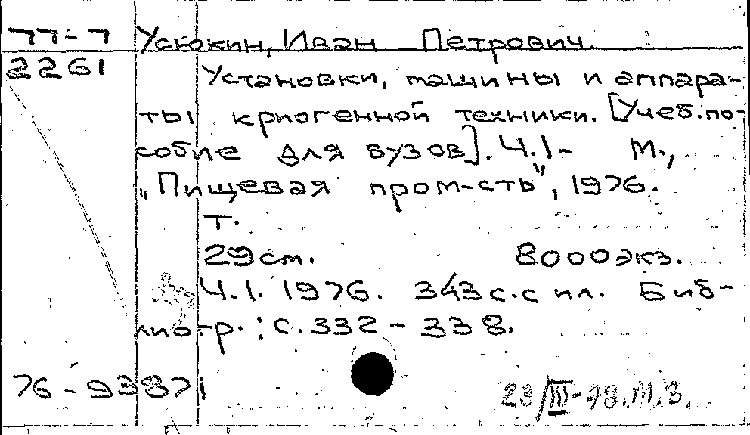 77-7 Усюкин, Иван Петрович.
2261 Установки, машины и аппара-
ты криогенной техники. [Учеб. по-
собие для вузов]. Ч.1- М.,
"Пищевая пром-сть", 1976.
т.
29 см. 8000 экз.
Ч.1. 1976. 343 с. с ил. Биб-
лиогр.: с. 332-338.
76-93871 23/III-78. М.З.